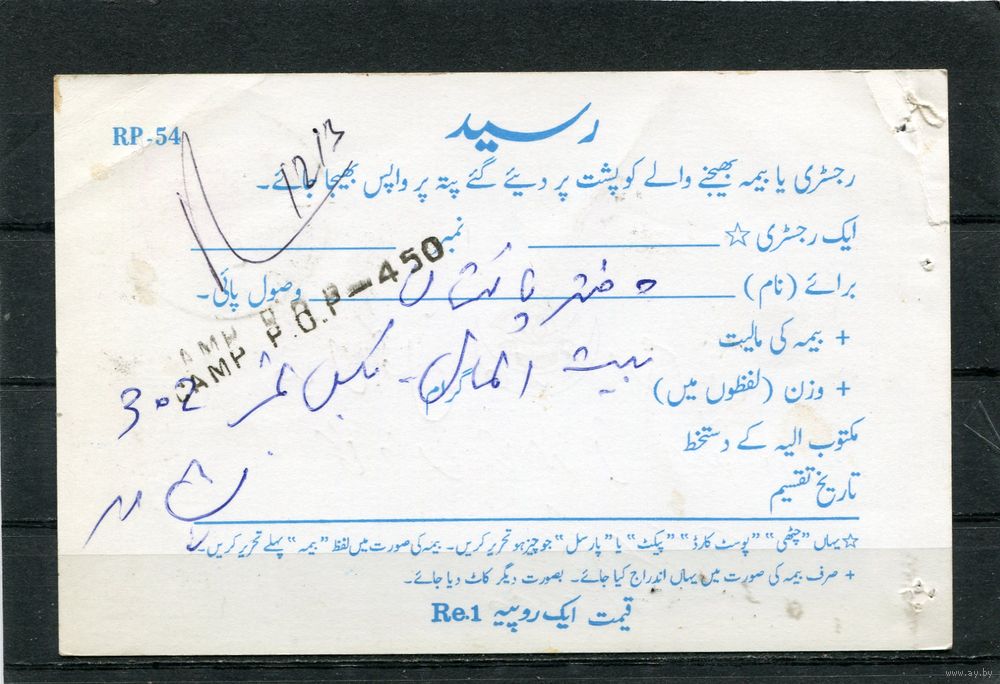 RP-54
رسید
12/3
رجسٹری یا بیمہ بھیجنے والے کو پشت پر دیئے گئے پتہ پر واپس بھیجا جائے۔
ایک رجسٹری ☆ نمبر
CAMP P.O.P-450
برائے (نام) دفتر پاکستان وصول پائی۔
+ بیمہ کی مالیت
بیت المال۔ بکس نمبر 302
+ وزن (لفظوں میں) گرام
مکتوب الیہ کے دستخط
تاریخ تقسیم
☆ یہاں "چٹھی" "پوسٹ کارڈ" "پیکٹ" یا "پارسل" جو چیز ہو تحریر کریں۔ بیمہ کی صورت میں لفظ "بیمہ" پہلے تحریر کریں۔
+ صرف بیمہ کی صورت میں یہاں اندراج کیا جائے۔ بصورت دیگر کاٹ دیا جائے۔
قیمت ایک روپیہ Re.1
www.ay.by